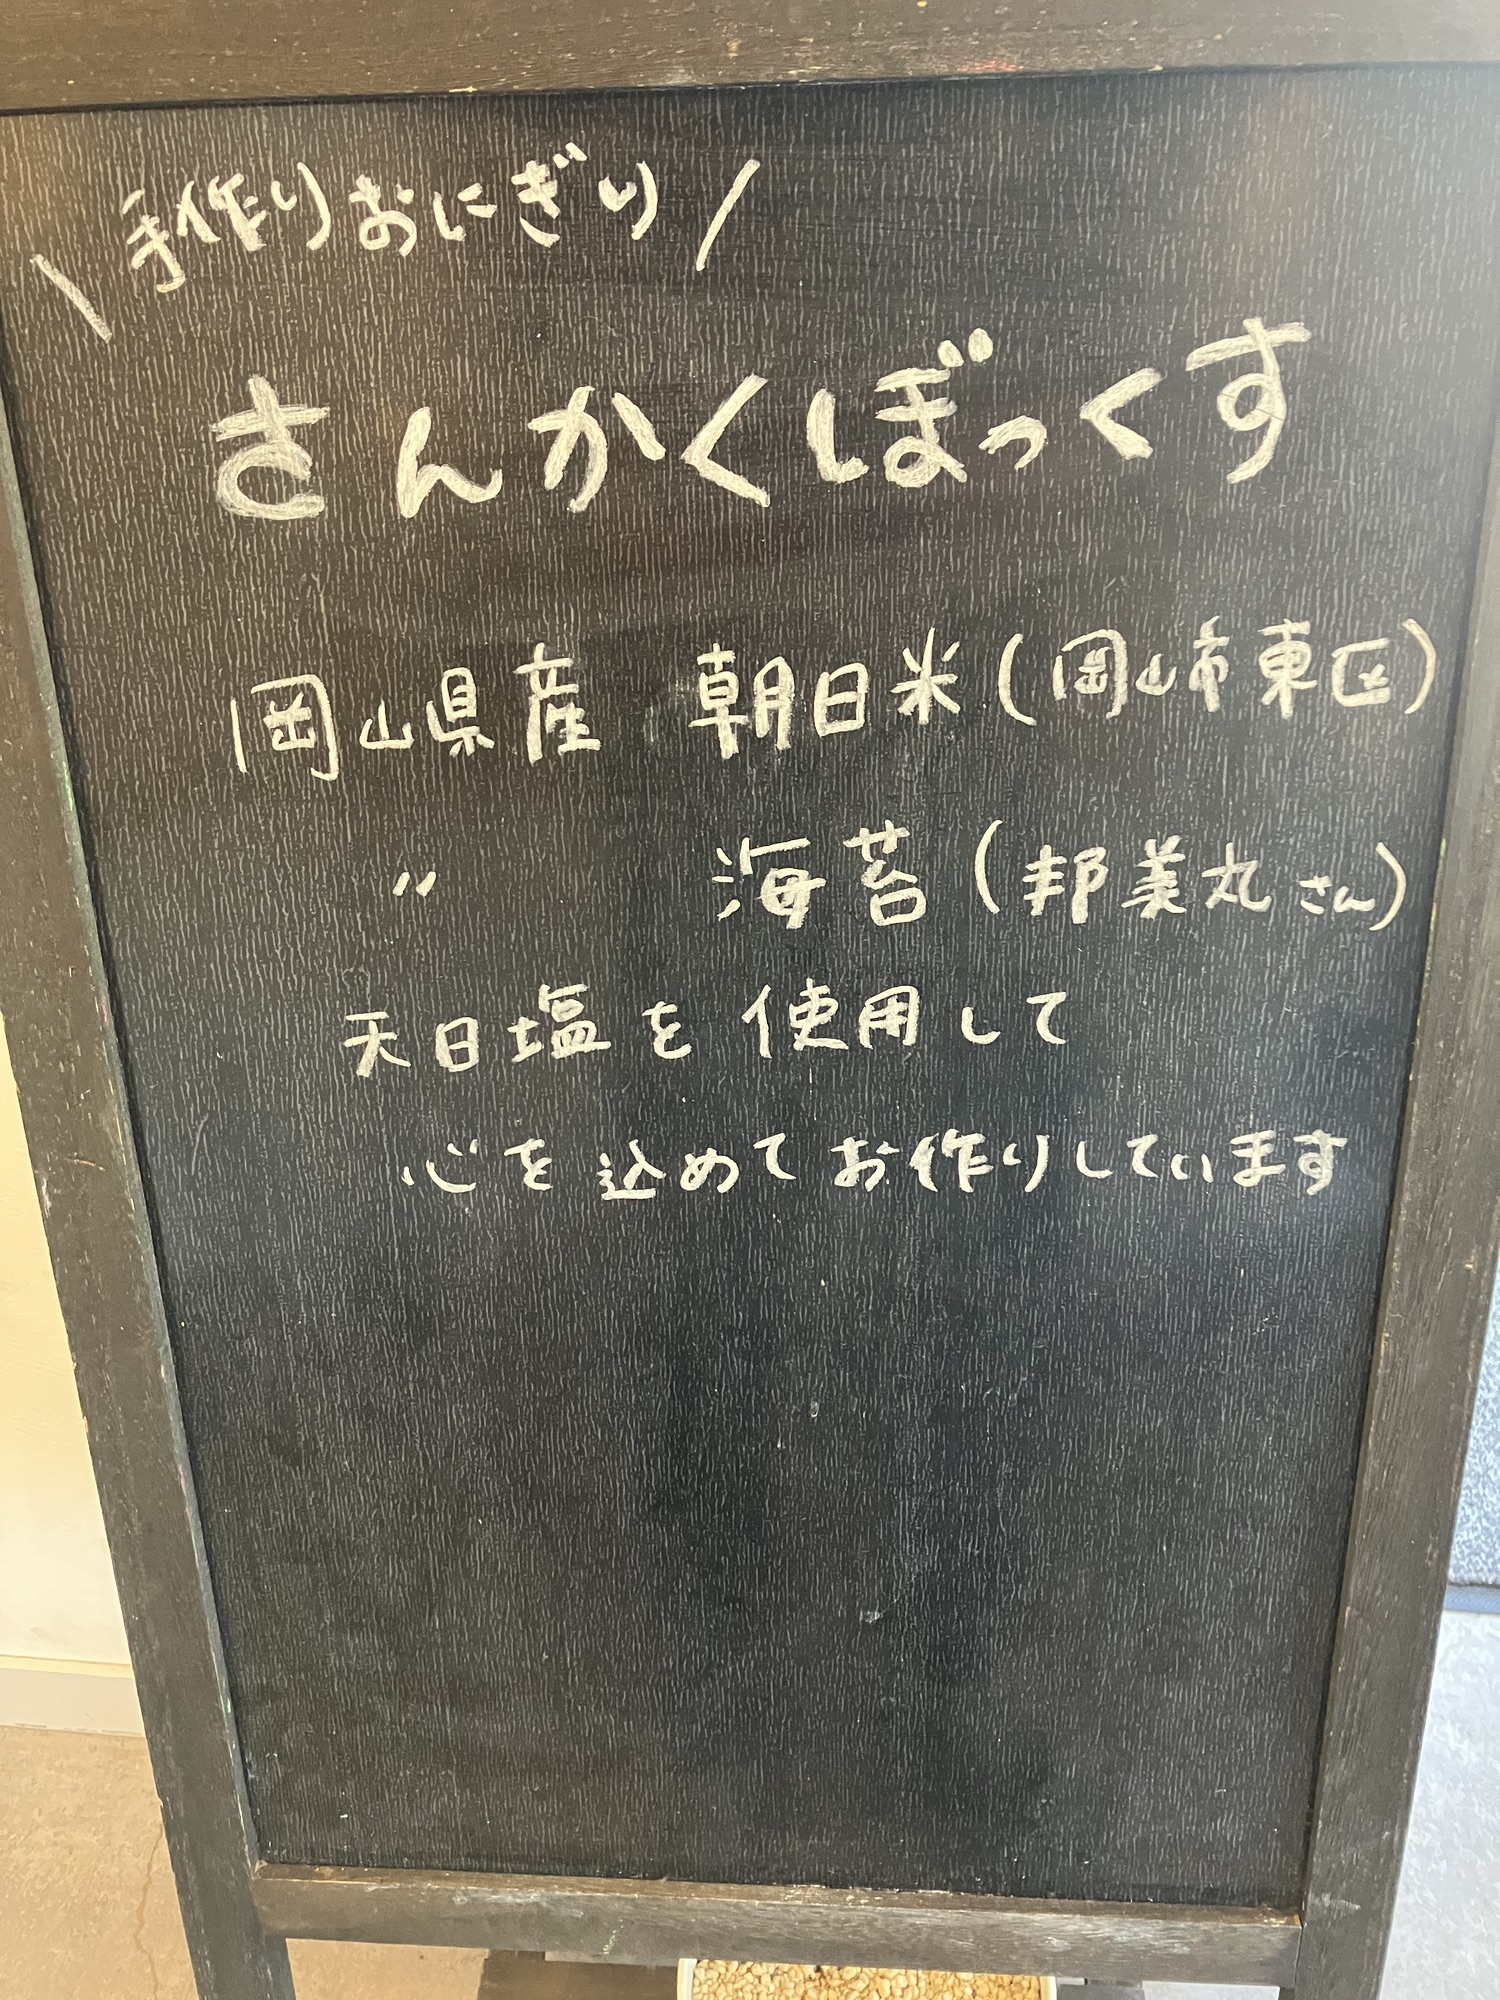 \ 手作りおにぎり /
さんかくぼっくす
岡山県産 朝日米(岡山市東区)
〃 海苔(邦美丸さん)
天日塩を使用して
心を込めてお作りしています